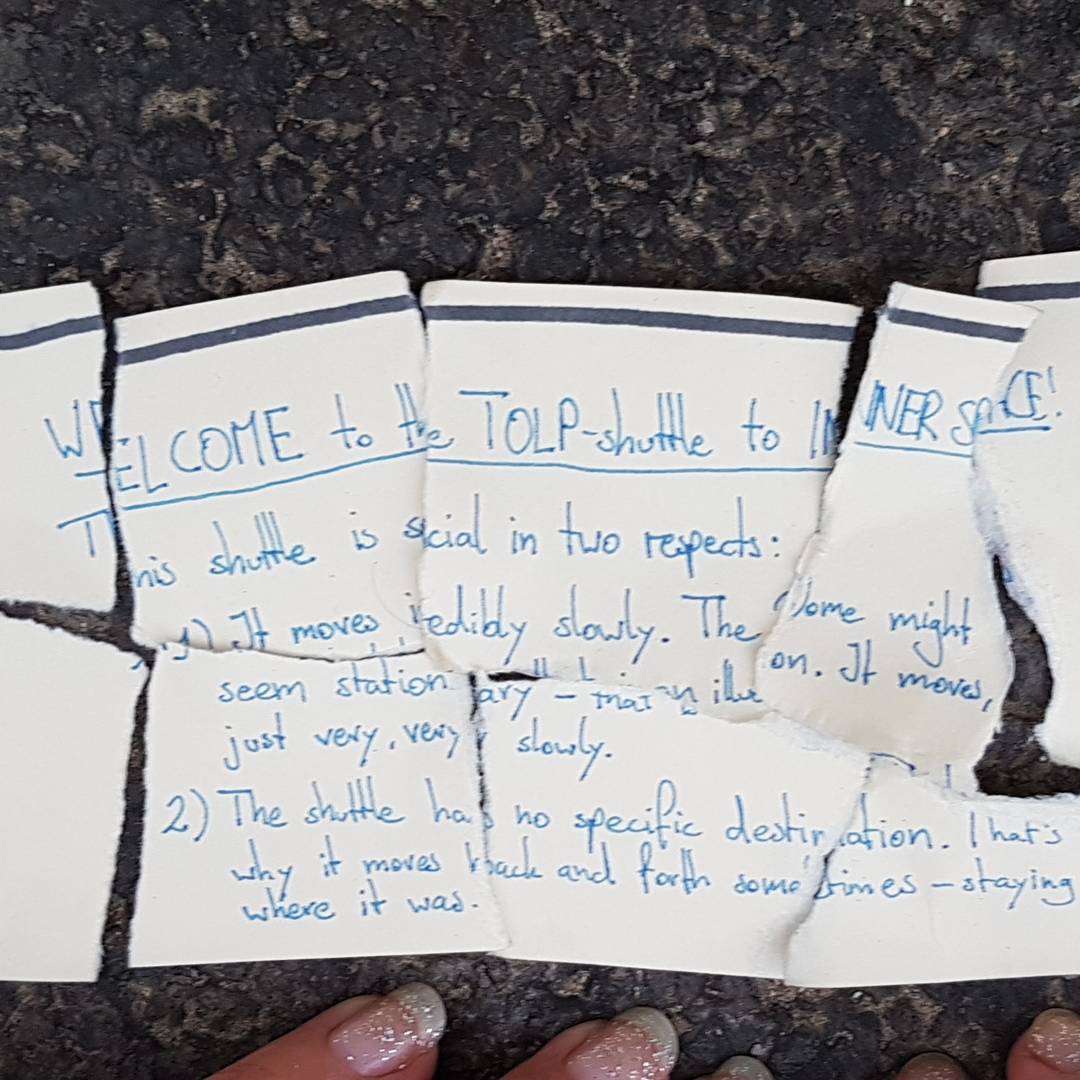 WELCOME to the TOLP-shuttle to INNER SPACE!
This shuttle is special in two respects:
1) It moves incredibly slowly. The Dome might
seem stationary – that's an illusion. It moves,
just very, very slowly.
2) The shuttle has no specific destination. That's
why it moves back and forth sometimes – staying
where it was.